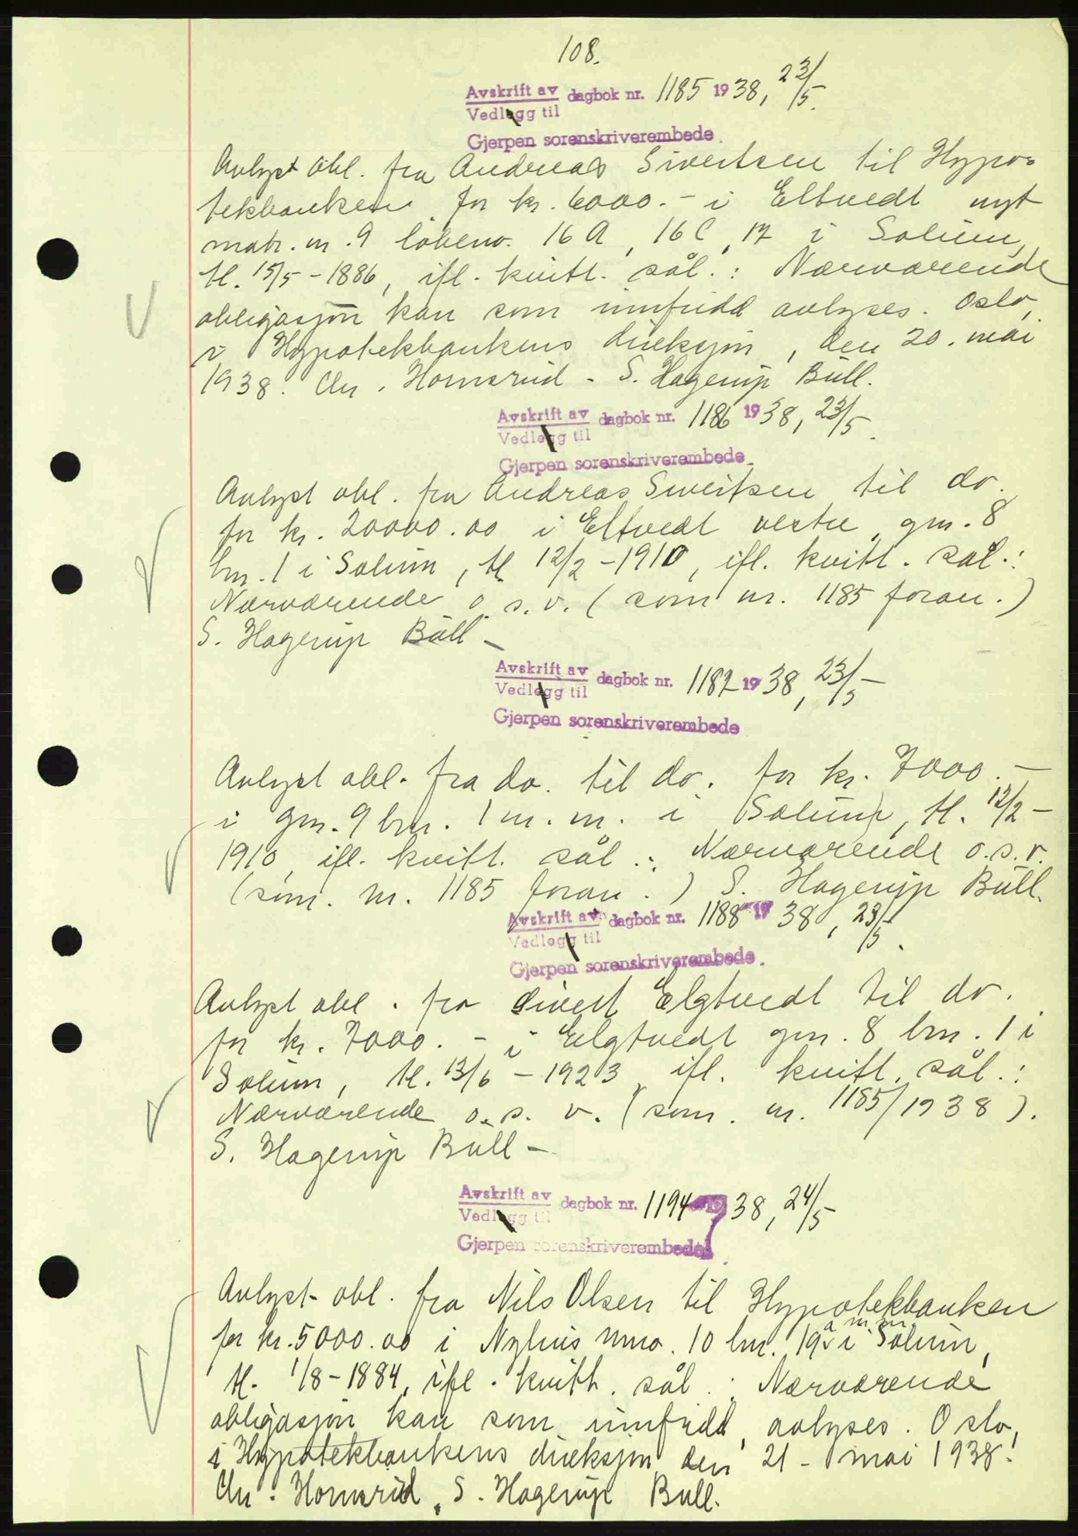 108.
Avskrift av dagbok nr. 1185 1938, 23/5.
Vedlegg til
Gjerpen sorenskriverembede.
Avlyst obl. fra Andreas Sivertsen til Hypo-
tekbanken for kr. 6000.- i Eltvedt nyt
matr. nr. 9 løbenr. 16A, 16C, 17 i Solum,
tl. 15/5-1886, ifl. kvitt. sål.: Nærværende
obligasjon kan som innfridd avlyses. Oslo,
i Hypotekbankens direksjon, den 20. mai
1938. Chr. Hornsrud - S. Hagerup Bull.
Avskrift av dagbok nr. 1186 1938, 23/5.
Vedlegg til
Gjerpen sorenskriverembede.
Avlyst obl. fra Andreas Sivertsen til do.
for kr. 20000.00 i Eltvedt vestre, gnr. 8
bnr. 1 i Solum, tl. 12/2-1910, ifl. kvitt. sål.:
Nærværende o.s.v. (som nr. 1185 foran.)
S. Hagerup Bull -
Avskrift av dagbok nr. 1187 1938, 23/5 -
Vedlegg til
Gjerpen sorenskriverembede
Avlyst obl. fra do. til do. for kr. 7000.-
i gnr. 9 bnr. 1 m. m. i Solum, tl. 12/2-
1910 ifl. kvitt. sål.: Nærværende o.s.v.
(som. nr. 1185 foran.) S. Hagerup Bull.
Avskrift av dagbok nr. 1188 1938, 23/5.
Vedlegg til
Gjerpen sorenskriverembede.
Avlyst obl. fra Sivert Elgtvedt til do.
for kr. 7000.- i Elgtvedt gnr. 8 bnr. 1 i
Solum, tl. 13/6-1923, ifl. kvitt. sål.:
Nærværende o.s.v. (som. nr. 1185/1938).
S. Hagerup Bull -
Avskrift av dagbok nr. 1194 1938, 24/5
Vedlegg til
Gjerpen sorenskriverembede
Avlyst obl. fra Nils Olsen til Hypotekbanken
for kr. 5000.00 i Nyhus gnr. 10 bnr. 19 i Solum,
tl. 1/8-1884, ifl. kvitt. sål.: Nærværende
obligasjon kan som innfridd avlyses. Oslo,
i Hypotekbankens direksjon den 21- mai 1938.
Chr. Hornsrud, S. Hagerup Bull.